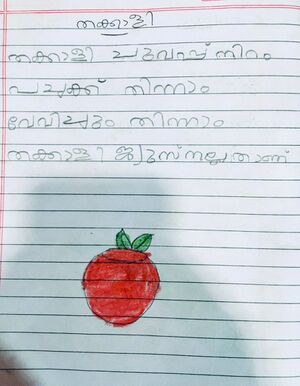 തക്കാളി
തക്കാളി ചുവപ്പ് നിറം
പച്ചക്ക് തിന്നാം
വേവിച്ചും തിന്നാം
തക്കാളി ജ്യുസ് നല്ലതാണ്